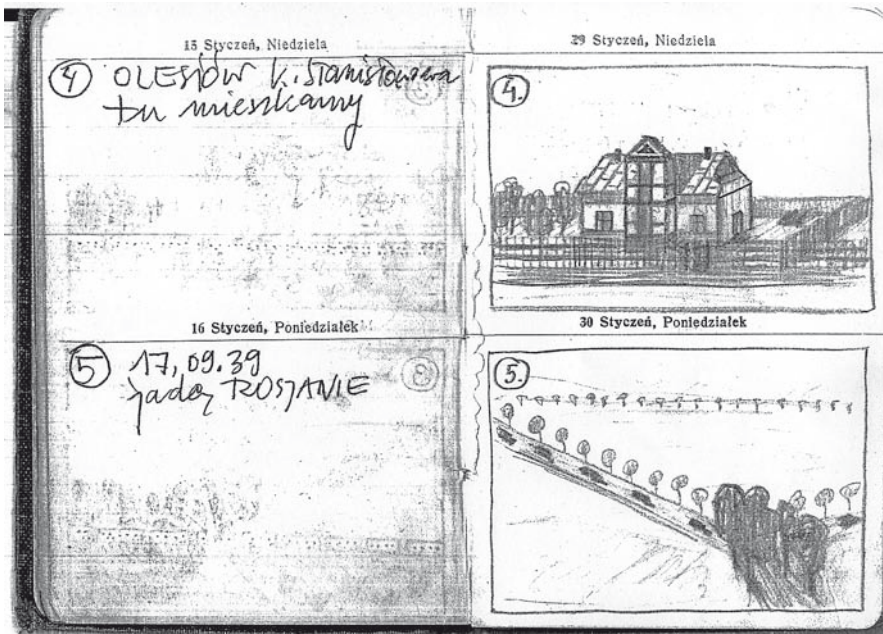 15 Styczeń, Niedziela
4 OLESIÓW k. Stanisławowa
tu mieszkamy
16 Styczeń, Poniedziałek
5 17,09.39
jadą ROSJANIE
8
29 Styczeń, Niedziela
4.
30 Styczeń, Poniedziałek
5.